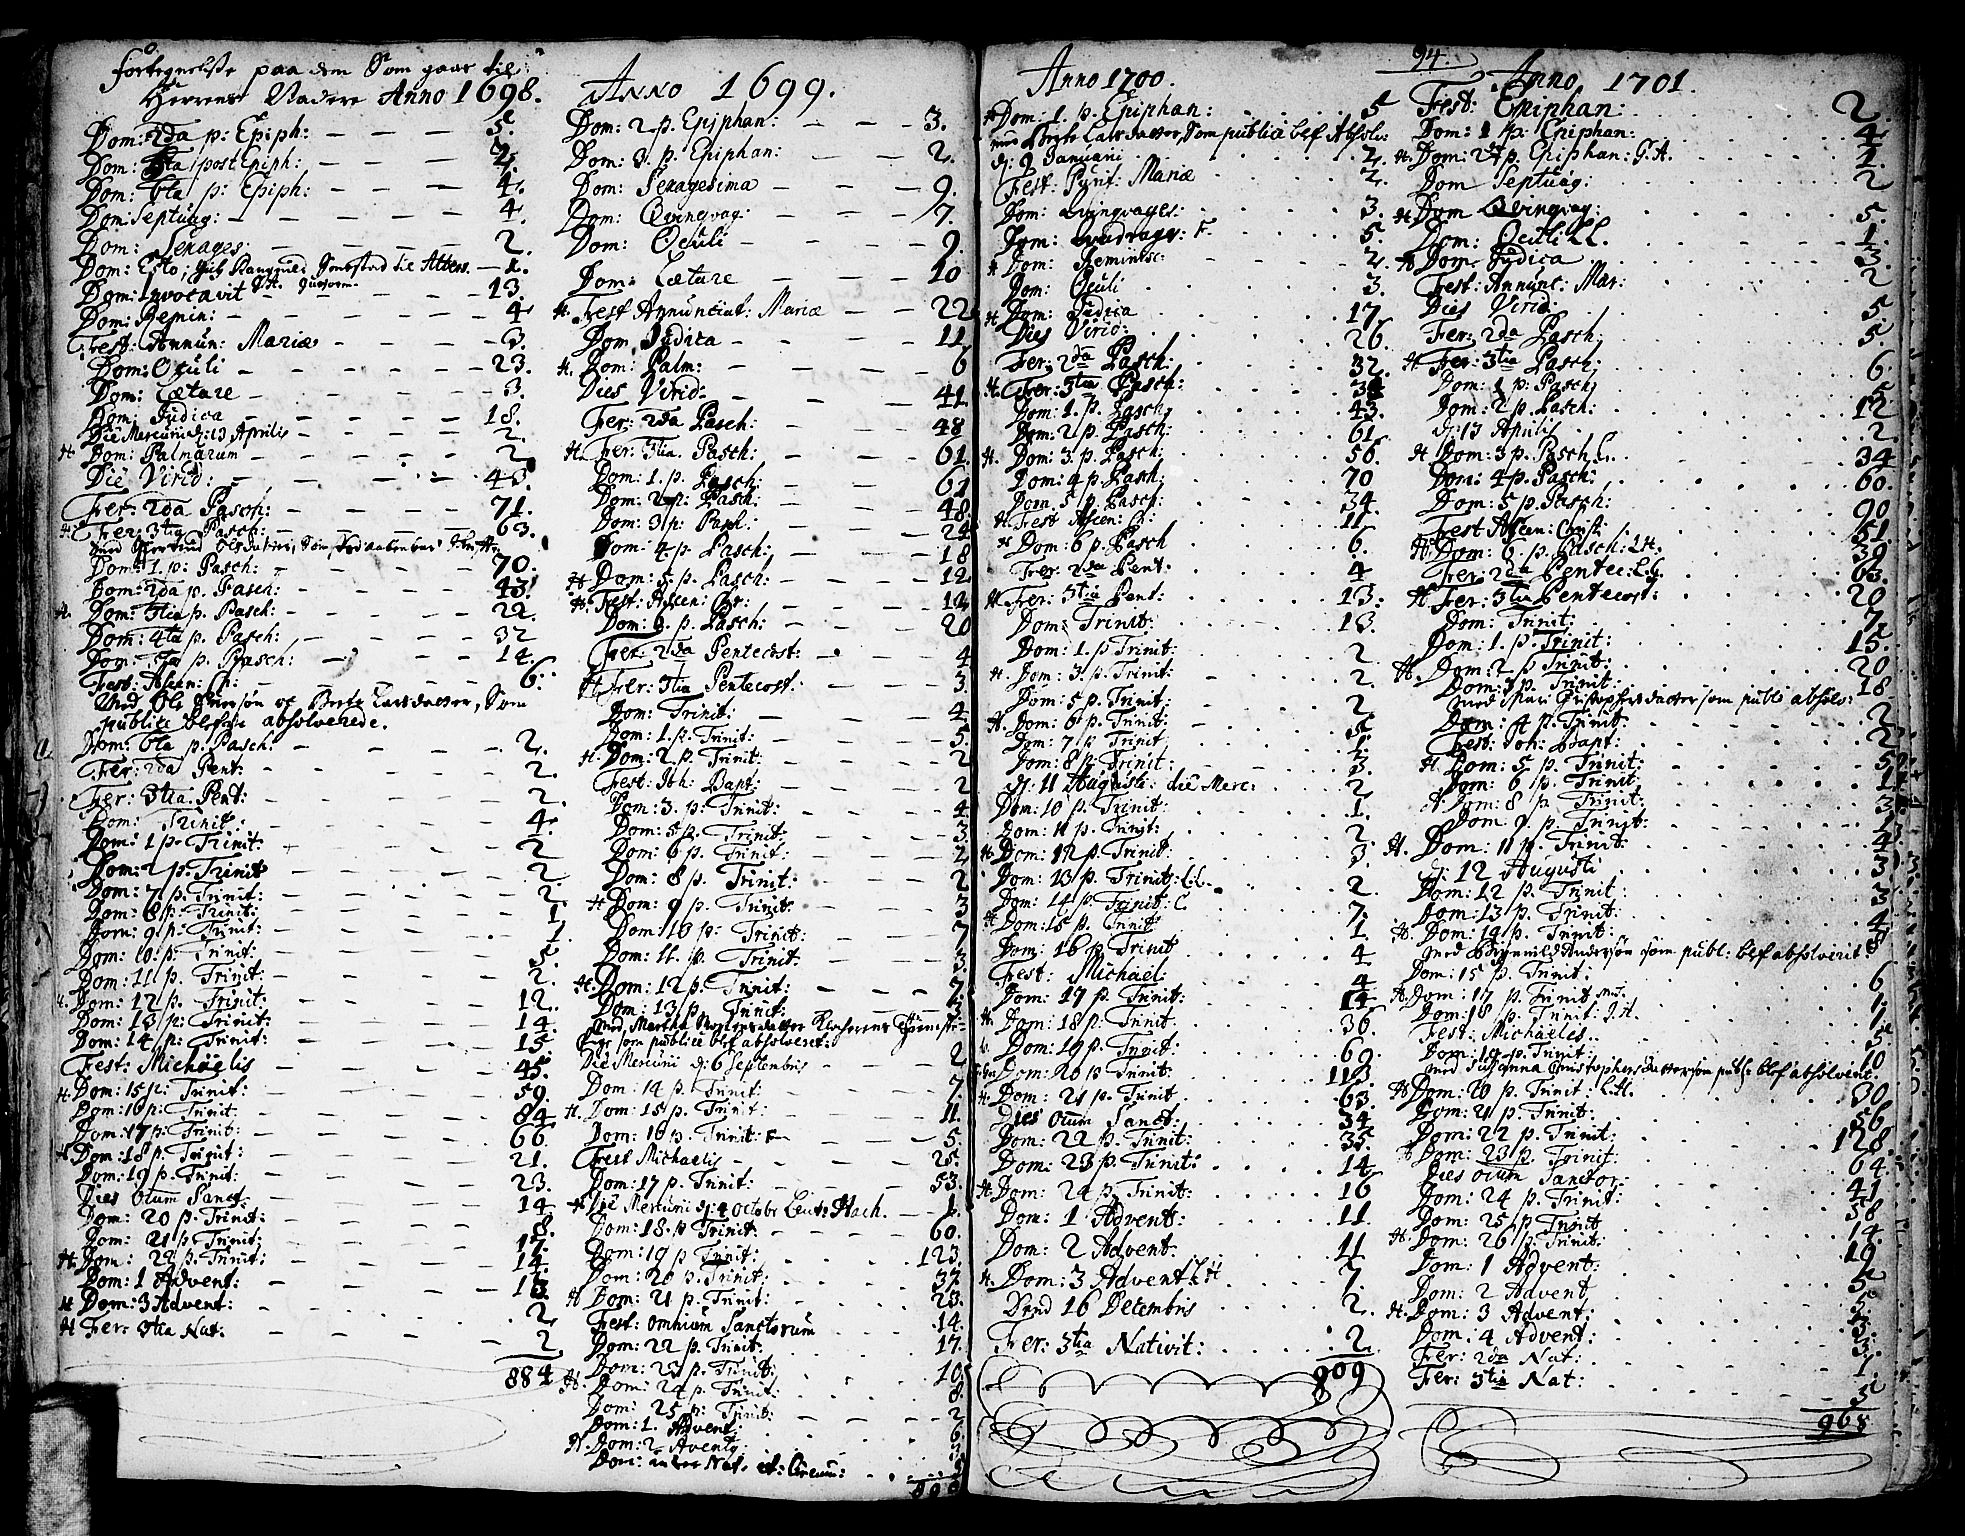 Fortegnelse paa dem Som gaar til
Herrens Nadere Anno 1698.
Dom: 3da p: Epiph: 5.
Dom: 5ta post Epiph: 2.
Dom: 6ta p: Epiph: 4.
Dom: Septuag: 4.
Dom: Sexages: 2.
Dom: Esto, til Alters. 1.
Dom: Invocavit 13.
Dom: Remin: 4
Fest: Annun: Mariæ 3.
Dom: Oculi 23.
Dom: Lætare 3.
Dom: Judica 18.
Die Mercurii d: 13 Aprilis 2.
H. Dom: Palmarum 2
Die Virid: 43.
Fer: 2da Pasch: 71.
H. Fer: 3tia Pasch: 63.
med Olsdatter, Som
Dom: 1. p: Pasch: 70.
Dom: 2da p. Pasch: 43.
H. Dom: 3tia p. Pasch: 22.
Dom: 4ta p. Pasch: 32
Dom: 5ta p. Pasch: 14.
Fest: Ascen: Ch: 6.
Med Ole Iversøn oc Berte Larsdatter, Som
publice blefve absolverede.
Dom: 6ta p. Pasch: 2.
Fer: 2da Pent: 2.
Fer: 3tia Pent: 2.
Dom: Trinit: 4.
Dom: 1 p: Trinit: 2
Dom: 2 p. Trinit 2.
Dom: 7 p. Trinit: 2.
Dom: 8 p: Trinit: 1.
Dom: 9 p: Trinit: 1.
Dom: 10 p: Trinit: 5.
Dom: 11 p. Trinit: 2.
H. Dom: 12 p. Trinit: 12.
Dom: 13 p: Trinit: 14.
Dom: 14 p: Trinit: 15
Fest: Michaëlis 45.
H. Dom: 15 p: Trinit: 59.
Dom: 16 p: Trinit: 84
Dom: 17 p: Trinit: 66.
H. Dom: 18 p: Trinit: 21.
Dom: 19 p. Trinit: 23.
Dies Oium Sanct: 14
Dom: 20 p. Trinit: 8.
Dom: 21 p. Trinit: 17.
H. Dom: 22 p. Trinit: 14.
Dom: 1 Advent: 13.
H Dom: 3 Advent: 2.
H Fer: 3tia Nat. 2
884
Anno 1699.
Dom: 2 p. Epiphan: 3.
Dom: 3 p. Epiphan: 2.
Dom: Sexagesima 9.
Dom: Qvingvag: 7.
Dom: Oculi 9.
Dom: Lætare 10
H. Fest Annuntiat: Mariæ 22
Dom Judica 11
H. Dom: Palm: 6
Dies Virid: 41
Fer: 2da Pasch: 48
H. Fer: 3tia Pasch: 61.
Dom: 1. p: Pasch: 61
Dom: 2 p: Pasch: 48
Dom: 3 p: Pasch: 24
Dom: 4 p. Pasch: 18
H. Dom: 5 p. Pasch: 12
H. Fest: Ascen: Chr: 12
Dom: 6 p. Pasch: 20
Fer: 2da Pentecost: 4
H Fer: 3tia Pentecost: 3.
Dom: Trinit: 4
Dom: 1. p. Trinit: 5.
H. Dom: 2 p. Trinit: 2
Fest: Joh: Bapt: 2
Dom: 3. p. Trinit: 4
Dom: 5 p. Trinit: 3
Dom: 6 p. Trinit: 2
Dom: 8 p. Trinit: 2
H Dom: 9 p. Trinit: 3
Dom: 10 p: Trinit: 7
Dom: 11. p. Trinit: 3.
H. Dom: 12 p. Trinit: 7
Dom: 13 p. Trinit: 3
Med Martha Klocherens
som publice blef absolveret:
Die Mercurii d: 6 Septembris 2
Dom: 14 p. Trinit: 7.
H. Dom: 15 p. Trinit: 11.
Dom: 16 p. Trinit: 5.
Fest Michaelis 25.
Dom: 17 p. Trinit: 53.
H Die Mercurii d: 4 Octobr 1.
Dom: 18. p Trinit: 60.
Dom: 19 p Trinit: 123.
Dom: 20 p. Trinit: 37.
H Dom: 21 p. Trinit: 23.
Fest: Omnium Sanctorum 14.
Dom: 22 p. Trinit: 17.
Dom: 23 p. Trinit: 10
H. Dom: 24 p. Trinit: 8.
Dom: 25 p: Trinit: 2
Dom: 1. Advent: 6
H. Dom: 2 Advent:
Dom: inter Nat. et Circum:
Anno 1700.
H Dom: 1. p. Epiphan: 5
med Larsdatter, Som publice blef Absolv:
d: 2 Januarii 2.
Fest: Purif: Mariæ 2.
Dom: Qvingvages: 3.
Dom: Qvadrages: 5.
H Dom: Reminisc: 2.
Dom: Oculi 3.
H Dom: Judica 17.
Dies Virid: 26.
Fer: 2da Pasch: 32.
H. Fer: 3tia Pasch:
Dom: 1. p. Pasch: 43.
Dom: 2 p. Pasch: 61.
H. Dom: 3. p. Pasch: 56.
Dom: 4 p. Pasch: 70
Dom. 5 p. Pasch: 34.
H. Fest Ascen: Ch: 11.
H Dom: 6 p. Pasch 6.
Fer: 2da Pent: 4
H. Fer: 3tia Pent: 13.
Dom: Trinit: 13.
Dom: 1. p Trinit: 2
H. Dom: 3. p. Trinit: 2.
Dom: 5 p. Trinit: 2
H. Dom: 6 p. Trinit:
Dom: 7 p. Trinit
Dom: 8 p. Trinit: 3.
d: 11 Augusti: die Merc: 2
Dom: 10 p. Trinit: 1.
Dom: 11 p. Trinit: 2
H. Dom: 12 p. Trinit: 3.
Dom: 13 p. Trinit: 2.
Dom: 14 p. Trinit. 7.
H Dom: 15 p. Trinit: 1.
Dom: 16 p. Trinit 4
Fest: Michael: 4
Dom: 17 p. Trinit: 14
H. Dom: 18 p: Trinit: 36.
Dom: 19 p. Trinit: 69.
Dom: 20 p Trinit: 113.
H. Dom: 21 p. Trinit 63.
Dies Oium Sanct: 34
Dom: 22 p. Trinit: 35.
Dom: 23 p. Trinit: 14
H. Dom: 24 p. Trinit: 16
Dom: 1 Advent: 11.
Dom: 2 Advent: 11
H. Dom: 3 Advent L H 7.
Dend 16 Decembris 2.
Fer: 3tia Nativit: 2.
909
94.
Anno 1701.
Fest: Epiphan: 2.
Dom: 1 p: Epiphan: 4
H. Dom: 2 p. Epiphan: J. H. 1.
Dom Septuag: 2
H Dom Qvingvag: 5.
Dom: Oculi L. L. 1.
H Dom. Judica 3.
Fest: Annunc: Mar: 2
Dies Virid: 5
Fer: 2da Pasch: 5.
H Fer: 3tia Pasch: 6.
Dom: 1 p: Pasch: 5
Dom: 2 p. Pasch: 12
d: 13 Aprilis 2.
H Dom: 3 p. Pasch 34
Dom: 4 p. Pasch: 60.
Dom: 5 p. Pasch: 90
Fest Ascen: Christ: 51.
H. Dom: 6. p. Pasch: L H. 39
Fer: 2da Pentec: L. L. 63.
H Fer: 3tia Pentecost: 20
Dom: Trinit: 7.
Dom: 1. p. Trinit: 15.
H. Dom: 2 p Trinit: 20
Dom: 3 p. Trinit: 18.
med Christophersdatter som publ: absolv:
Dom: 4 p. Trinit: 2
Fest: Joh: Bapt: 2
H Dom: 5 p. Trinit: 5
Dom: 6 p. Trinit 1.
H Dom: 8 p. Trinit: 3
Dom: 9 p. Trinit:
H. Dom: 11 p. Trinit: 4
d: 12 Augusti 3
Dom: 12 p. Trinit: 3
Dom: 13 p. Trinit: 4
H. Dom: 14 p. Trinit: 8
med Andersøn som publ: blef absolverit
Dom: 15 p. Trinit: 6
H. Dom: 17 p. Trinit 1.
Dom: 18 p. Trinit: J. H. 1.
Fest: Michaeles. 5
Dom: 19 p. Trinit: 10
med Susanna Christophersdatter som publ: blef absolverit
H Dom: 20 p. Trinit: L. H. 30
Dom: 21 p. Trinit: 56
Dom: 22 p. Trinit: 128.
H Dom: 23 p. Trinit: 64.
Dies Oium Sanctor: 41
Dom: 24 p. Trinit: 58
Dom: 25 p: Trinit 14.
H. Dom: 26 p: Trinit: 19
Dom: 1 Advent: 5
Dom: 2 Advent:
H. Dom: 3 Advent:
Dom: 4 Advent: 3.
Fer: 2da Nat: 1
Fer: 3tia Nat: 5
968